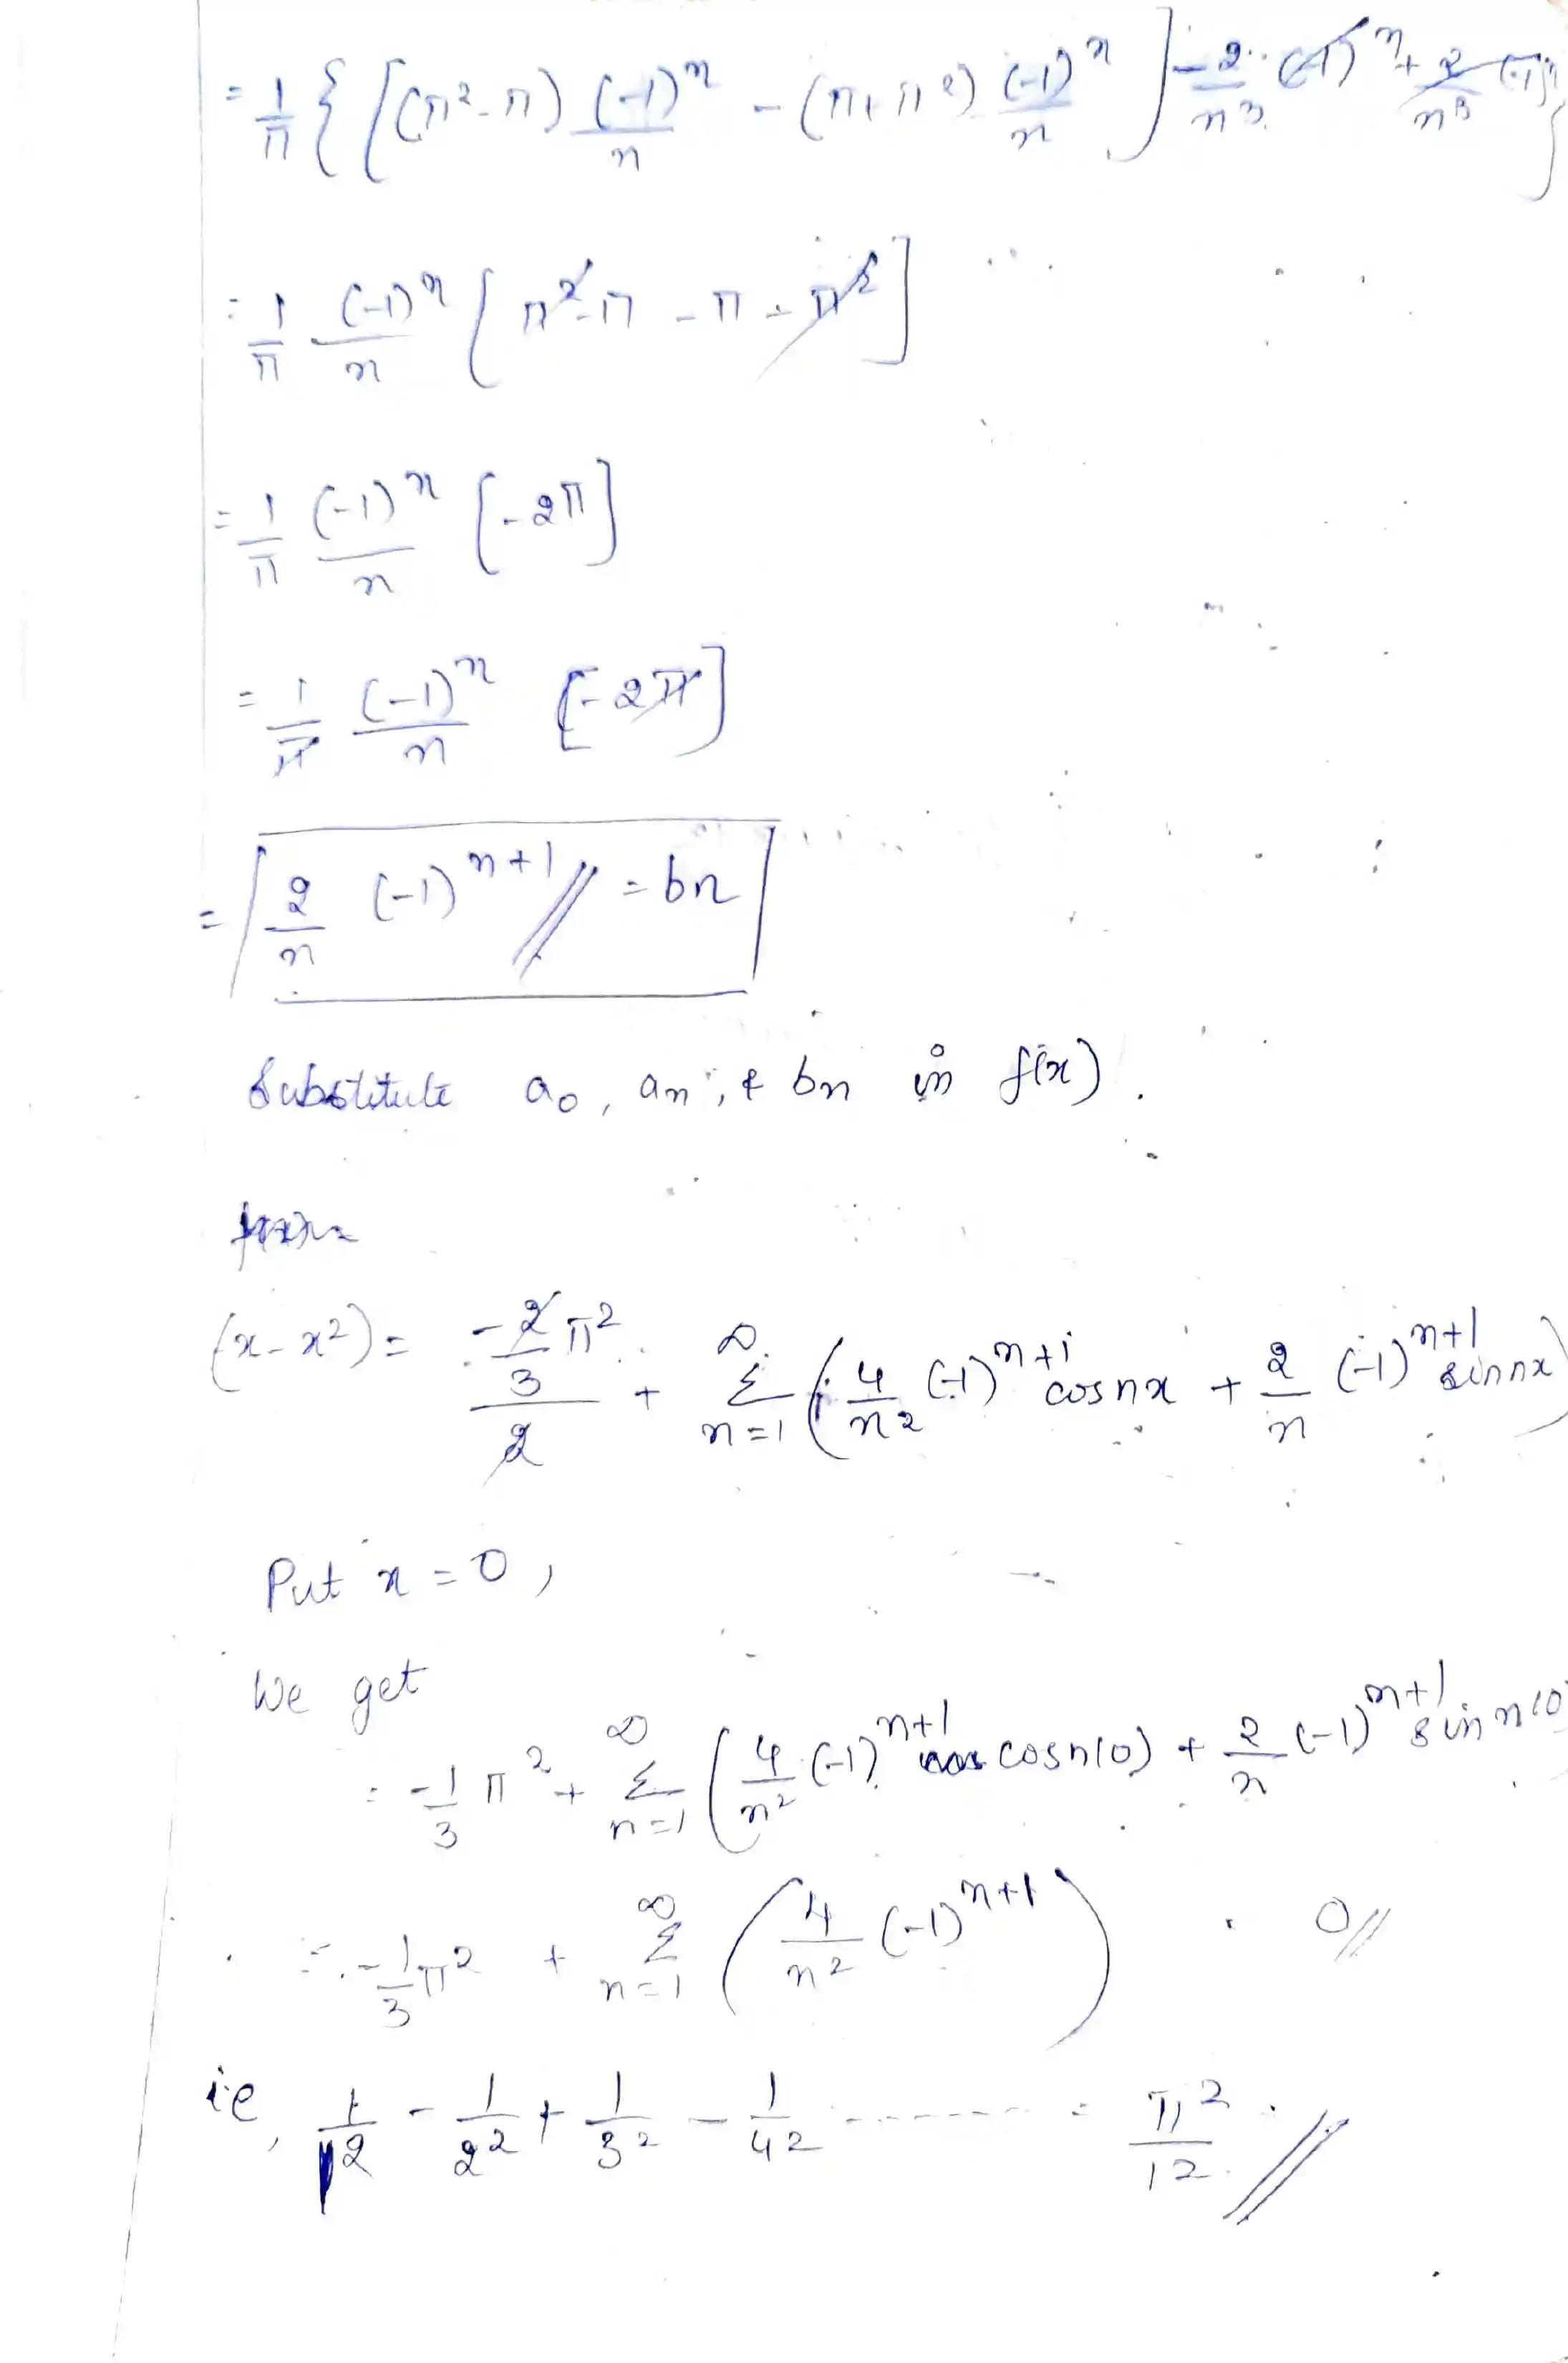 = 1/π { [(π² - π) (-1)ⁿ/n - (π + π²) (-1)ⁿ/n] - 2/n³ (-1)ⁿ + 2/n³ (-1)ⁿ }
= 1/π (-1)ⁿ/n [π² - π - π - π²]
= 1/π (-1)ⁿ/n [-2π]
= 1/π (-1)ⁿ/n [-2π]
= 2/n (-1)ⁿ⁺¹ // = bn
Substitute a₀, an, & bn in f(x).
(x - x²) = (-2/3 π²)/2 + ∞Σn=1 (4/n² (-1)ⁿ⁺¹ cosnx + 2/n (-1)ⁿ⁺¹ sinnx)
Put x = 0,
We get
= -1/3 π² + ∞Σn=1 (4/n² (-1)ⁿ⁺¹ cosn(0) + 2/n (-1)ⁿ⁺¹ sinn(0
= -1/3 π² + ∞Σn=1 (4/n² (-1)ⁿ⁺¹) = 0//
ie, 1/1² - 1/2² + 1/3² - 1/4² -------- = π²/12 //